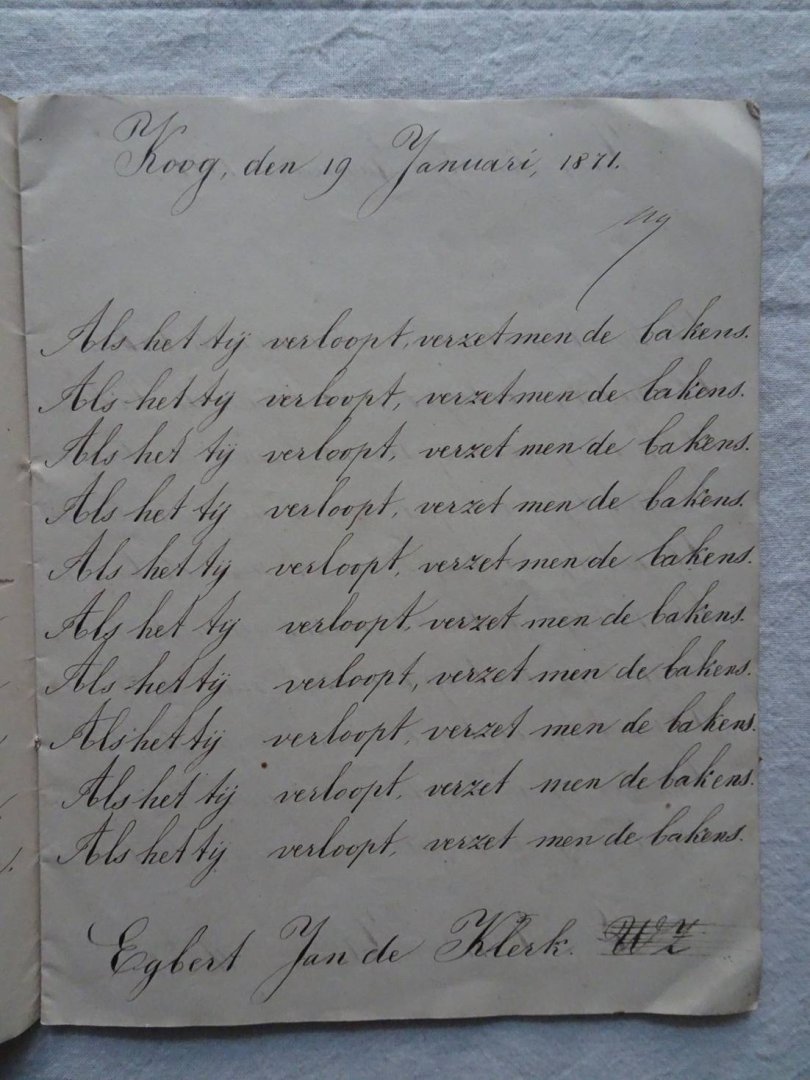 Koog, den 19 Januari, 1871.
Als het tij verloopt, verzet men de bakens.
Als het tij verloopt, verzet men de bakens.
Als het tij verloopt, verzet men de bakens.
Als het tij verloopt, verzet men de bakens.
Als het tij verloopt, verzet men de bakens.
Als het tij verloopt, verzet men de bakens.
Als het tij verloopt, verzet men de bakens.
Als het tij verloopt, verzet men de bakens.
Als het tij verloopt, verzet men de bakens.
Als het tij verloopt, verzet men de bakens.
Egbert Jan de Klerk. WZ